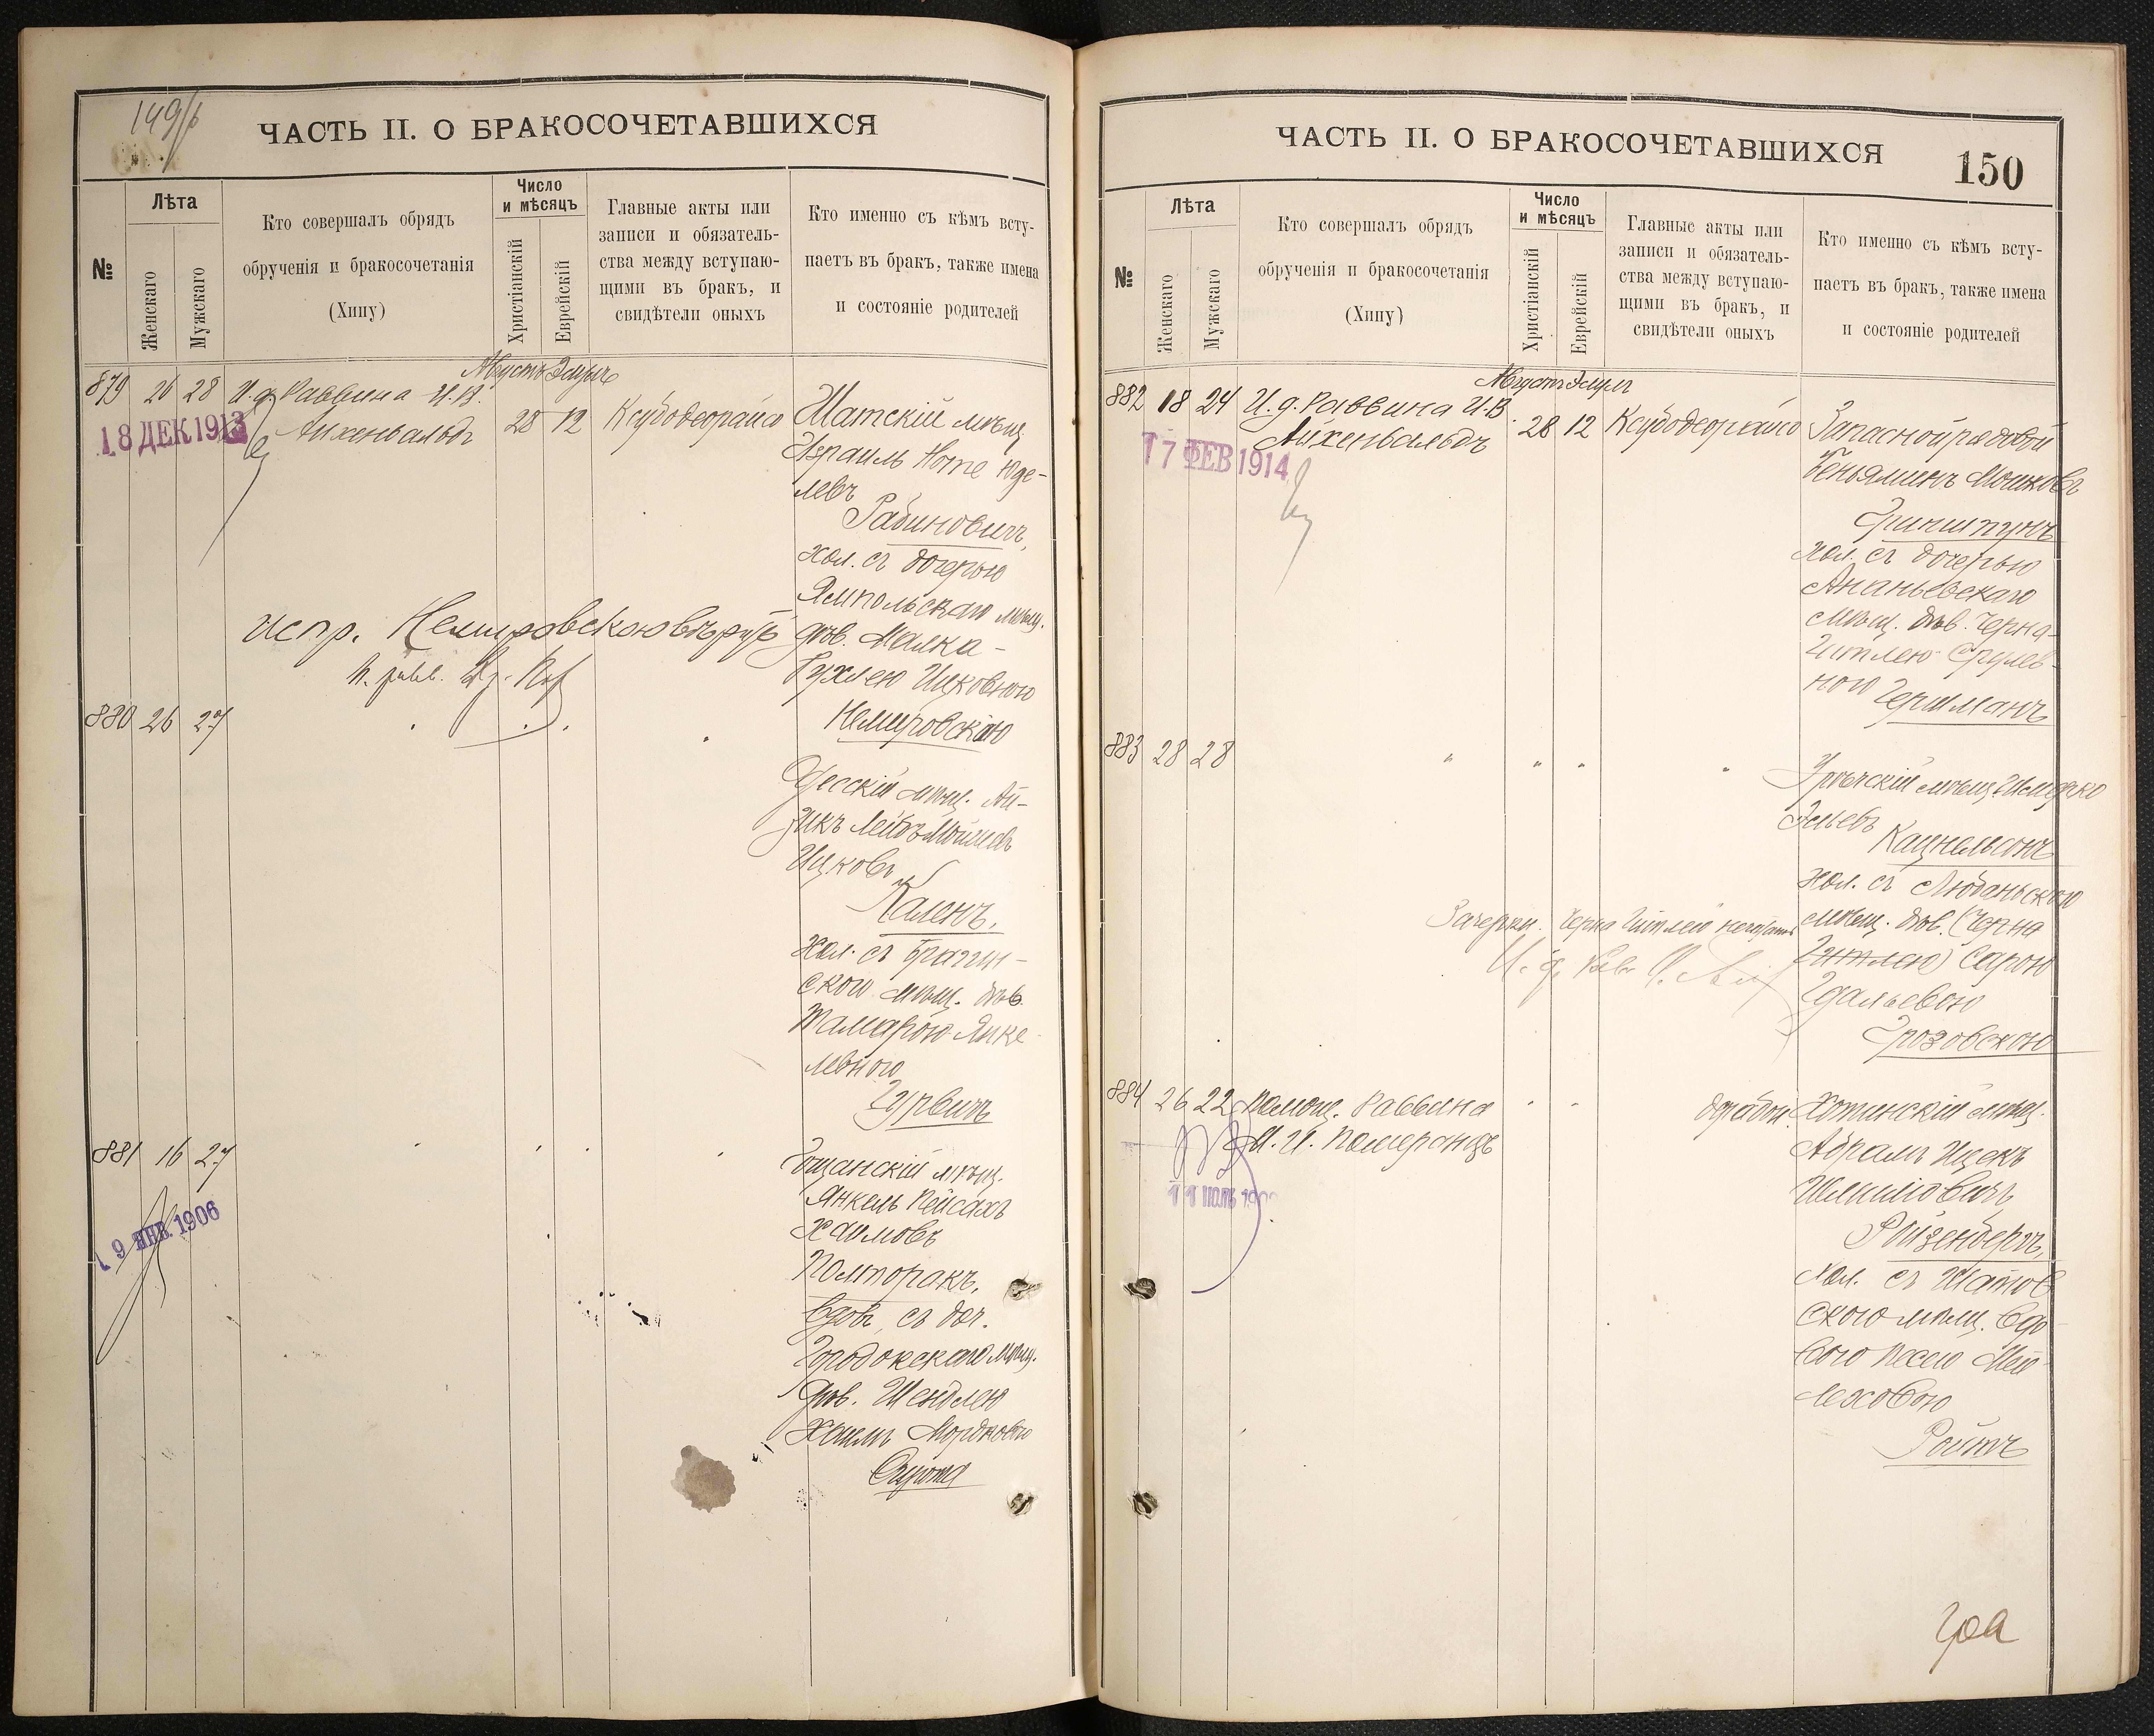 149/b
ЧАСТЬ II. О БРАКОСОЧЕТАВШИХСЯ
№
Лѣта
Женскаго
Мужскаго
Кто совершалъ обрядъ
обрученія и бракосочетанія
(Хипу)
Число
и мѣсяцъ
Христіанскій
Еврейскій
Главные акты или
записи и обязатель-
ства между вступаю-
щими въ бракъ, и
свидѣтели оныхъ
Кто именно съ кѣмъ всту-
паетъ въ бракъ, также имена
и состояніе родителей
Августъ Элулъ
879 26 28 И. д. Раввина И. В.
Айхенвальдъ 28 12 Ксубодеорайсо
18 ДЕК 1913
Шатскій мѣщ.
Израиль Ноте Юде-
левъ
Рабиновичъ,
хол. съ дочерью
Ямпольскаго мѣщ.
дѣв. Малка-
Рухлею Ицковною
Немировскою
испр. Немировскою вѣрую
880 26 27
Одесскій мѣщ. Ай-
зикъ Лейбъ Мойшевъ
Ицковъ
Каленъ,
Хол. съ Брагин-
скою мѣщ. дѣв
Тамарою Янке-
левною
Гурвичъ
881 16 27
19 ЯНВ. 1906
Гощанскій мѣщ.
Янкель Пейсахъ
Хаимовъ
Полторакъ,
Вдов. съ доч.
Городокскаго мѣщ.
дѣв. Шендлею
Хаимъ Мордковою
Сирота
ЧАСТЬ II. О БРАКОСОЧЕТАВШИХСЯ
150
№
Лѣта
Женскаго
Мужскаго
Кто совершалъ обрядъ
обрученія и бракосочетанія
(Хипу)
Число
и мѣсяцъ
Христіанскій
Еврейскій
Главные акты или
записи и обязатель-
ства между вступаю-
щими въ бракъ, и
свидѣтели оныхъ
Кто именно съ кѣмъ всту-
паетъ въ бракъ, также имена
и состояніе родителей
Августъ Элулъ
882 18 24 И. д. Раввина И. В.
Айхенвальдъ 28 12 Ксубодеорайсо
17 ФЕВ 1914
Запасной рядовой
Беньяминъ Мошковъ
Гриншпунъ
хол. съ дочерью
Ананьевскаго
мѣщ. дѣв. Черна-
Гитлею Срулев-
ною Гершманъ
883 28 28 " " " "
Эльевъ
Кацнельсонъ
хол. съ Любаньскою
мѣщ. дѣв. (Черна
Гитлею) Сарою
Гдальевою
Грозовскою
Зачеркн. Черна Гитлею не читать
884 26 22 Помощ. Раввина
М. И. Померанцъ
11 ИЮЛЬ
Хотинскій мѣщ.
Абрамъ Ицекъ
Шлиомовичъ
Ройзенбергъ,
хол. съ Шатов
скою мѣщ. Вдо
вою Песею Мей-
леховою
Ройтъ